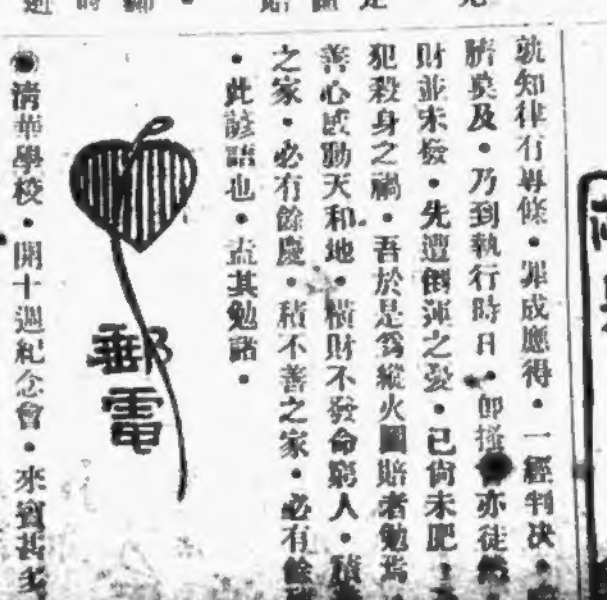 孰知律有專條・罪成應得・一經判决・
臍莫及・乃到執行時日・卽搔首亦徒
財並未發・先遭倒運之憂・己尙未肥・
犯殺身之禍・吾於是爲縱火圖賠者勉焉・
善心感動天和地・橫財不發命窮人・積
之家・必有餘慶・積不善之家・必有餘
・此諺語也・盍其勉諸・
郵電
◉淸華學校・開十週紀念會・來賓甚多